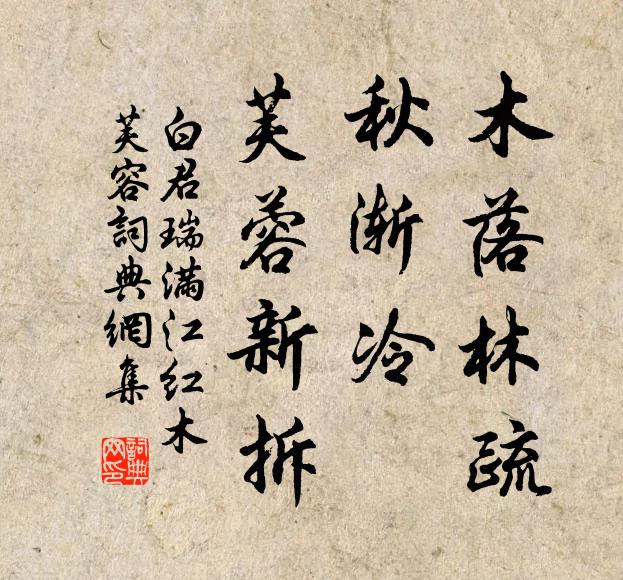 木落林疏
秋渐冷
芙蓉新拆
白君瑞满江红木
芙容詞典網集
詞典
网印